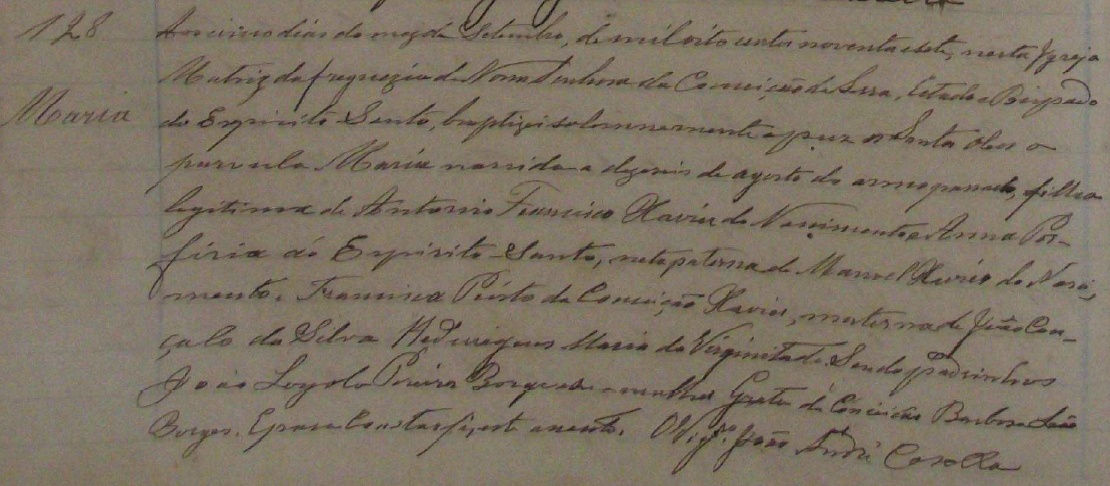 128 Aos cinco dias do mez de Setembro, de mil oito centos noventa e sete, nesta Igreja
Matriz da freguezia de Nossa Senhora da Conceição da Serra, Estado e Bispado
Maria do Espirito Santo, baptizei solemnemente e puz os Santos oleos a
parvula Maria nascida a dezeseis de agosto do anno passado, filha
legitima de Antonio Francisco Xavier do Nascimento e Anna Por-
firia do Espirito-Santo, neta paterna de Manoel Xavier do Nasci-
mento, Francisca Pinto da Conceição Xavier, materna de João Gon-
çalo da Silva Maria da Virgindade. Sendo padrinhos
João Loyola Pereira Borges e mulher da Conceição Barbosa
Borges. E para constar fiz este assento. O Vigr.o João André Casella